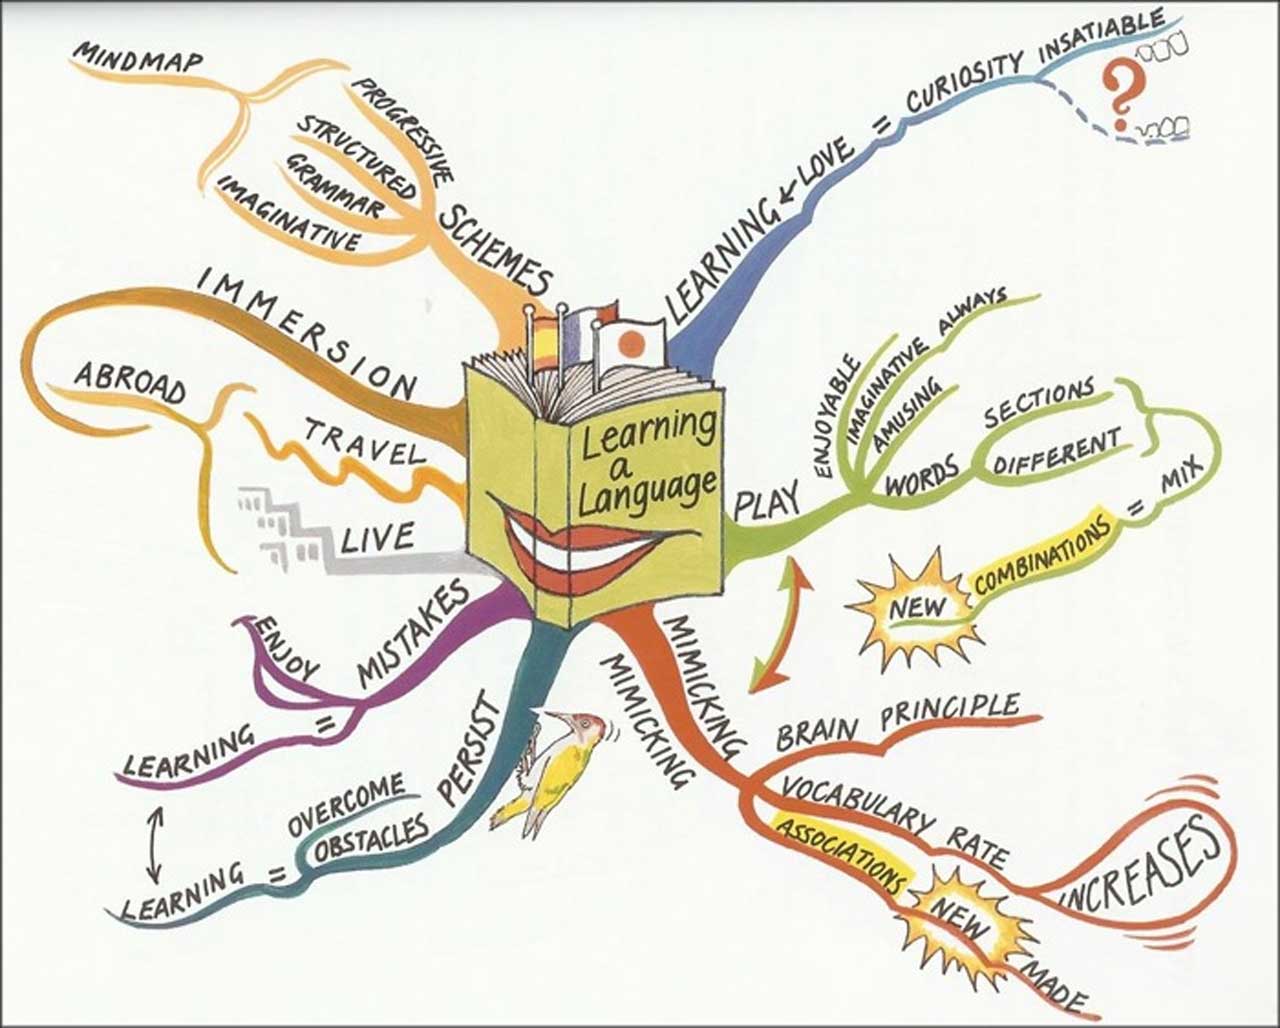 Learning
a
Language
LEARNING ↙ LOVE = CURIOSITY INSATIABLE
?
PLAY
ENJOYABLE
IMAGINATIVE ALWAYS
AMUSING
WORDS
SECTIONS
DIFFERENT
MIX
=
COMBINATIONS
NEW
MIMICKING
MIMICKING
BRAIN PRINCIPLE
VOCABULARY RATE
INCREASES
ASSOCIATIONS
NEW
MADE
PERSIST
OVERCOME
OBSTACLES
=
LEARNING
MISTAKES
ENJOY
=
LEARNING
LIVE
TRAVEL
ABROAD
IMMERSION
SCHEMES
PROGRESSIVE
STRUCTURED
GRAMMAR
IMAGINATIVE
MINDMAP